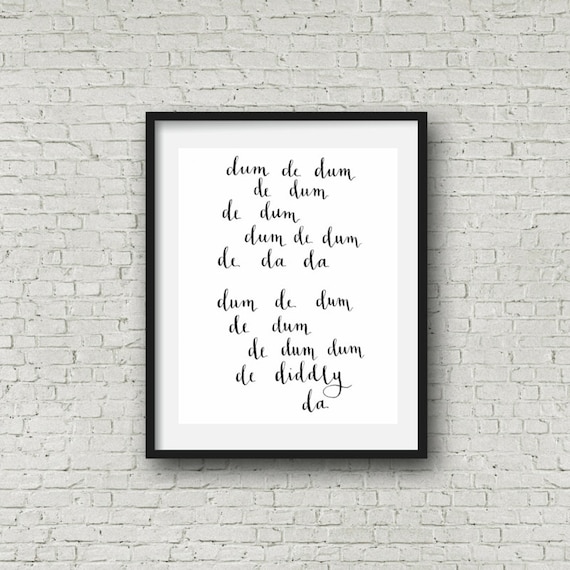 dum de dum
de dum
de dum
dum de dum
de da da
dum de dum
de dum
de dum dum
de diddly
da